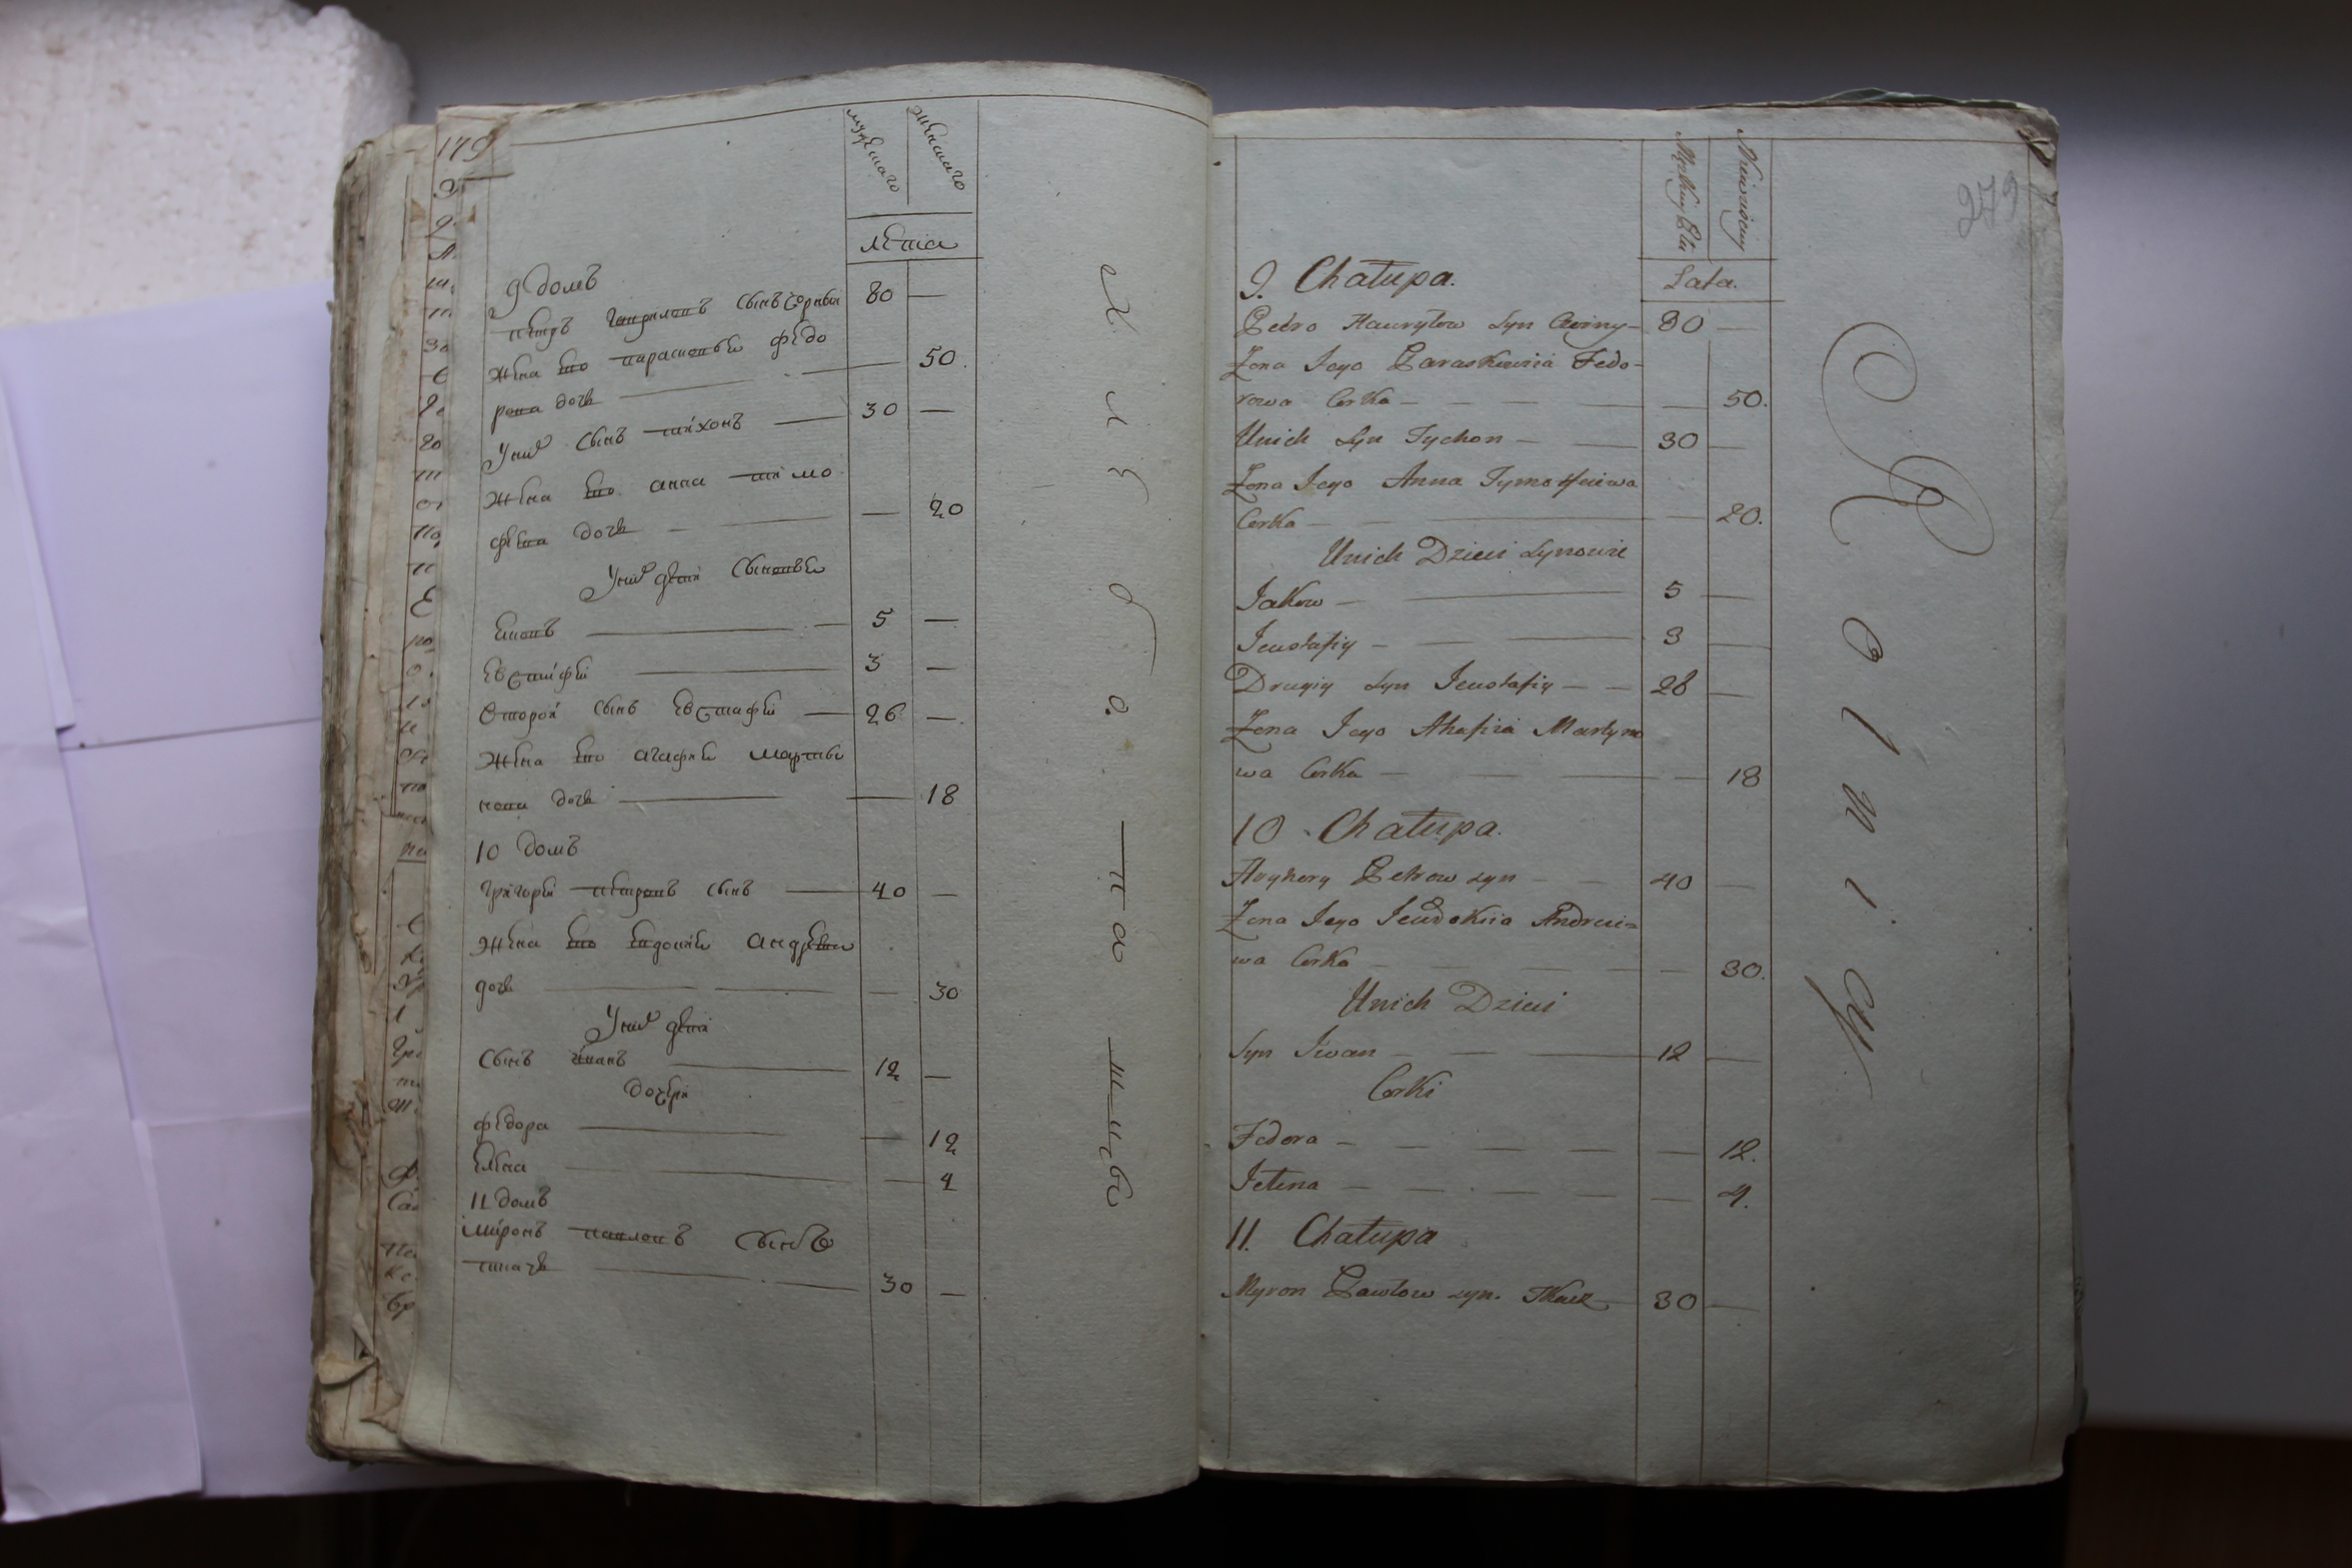 179
мужескаго
женскаго
лета
9 домъ
петръ гавриловъ сынъ чорны 80 —
жена ево парасковья федо
рова дочь — 50.
У них сынъ тихонъ — 30 —
жена ево анна тимо
феева дочь — 20
У них дети сыновья
яковъ — 5 —
евстафи — 3 —
второй сынъ евстафи — 26 —
жена ево агафия марты
нова дочь — 18
10 домъ
григори петровъ сынъ — 40 —
жена ево евдокия андреева
дочь — 30
У них дети
сынъ иванъ — 12 —
дочери
федора — 12
елена — 4
11 домъ
миронъ павловъ сынъ
ткачь — 30 —
Хлебопашцы
279
Męzkiey Płci
Niewieściey
Lata.
9. Chałupa.
Pedro Hawryłow Syn Czorny — 80 —
Żona Jego Paraskiewia Fedo-
rowa Corka — 50.
Unich Syn Tychon — 30 —
Żona Jego Anna Tymofiejewa
Corka — 20.
Unich Dzieci Synowie
Jakow — 5 —
Jewstafiy — 3 —
Drugiy Syn Jewstafiy — 28 —
Żona Jego Ahafia Martyno
wa Corka — 18
10. Chałupa.
Hryhory Petrow syn — 40 —
Żona Jego Jewdokiia Andreie-
wa Corka — 30.
Unich Dzieci
Syn Iwan — 12 —
Corki
Fedora — 12.
Jelena — 4.
11. Chałupa
Myron Pawłow syn. Tkacz — 30 —
Rolnicy